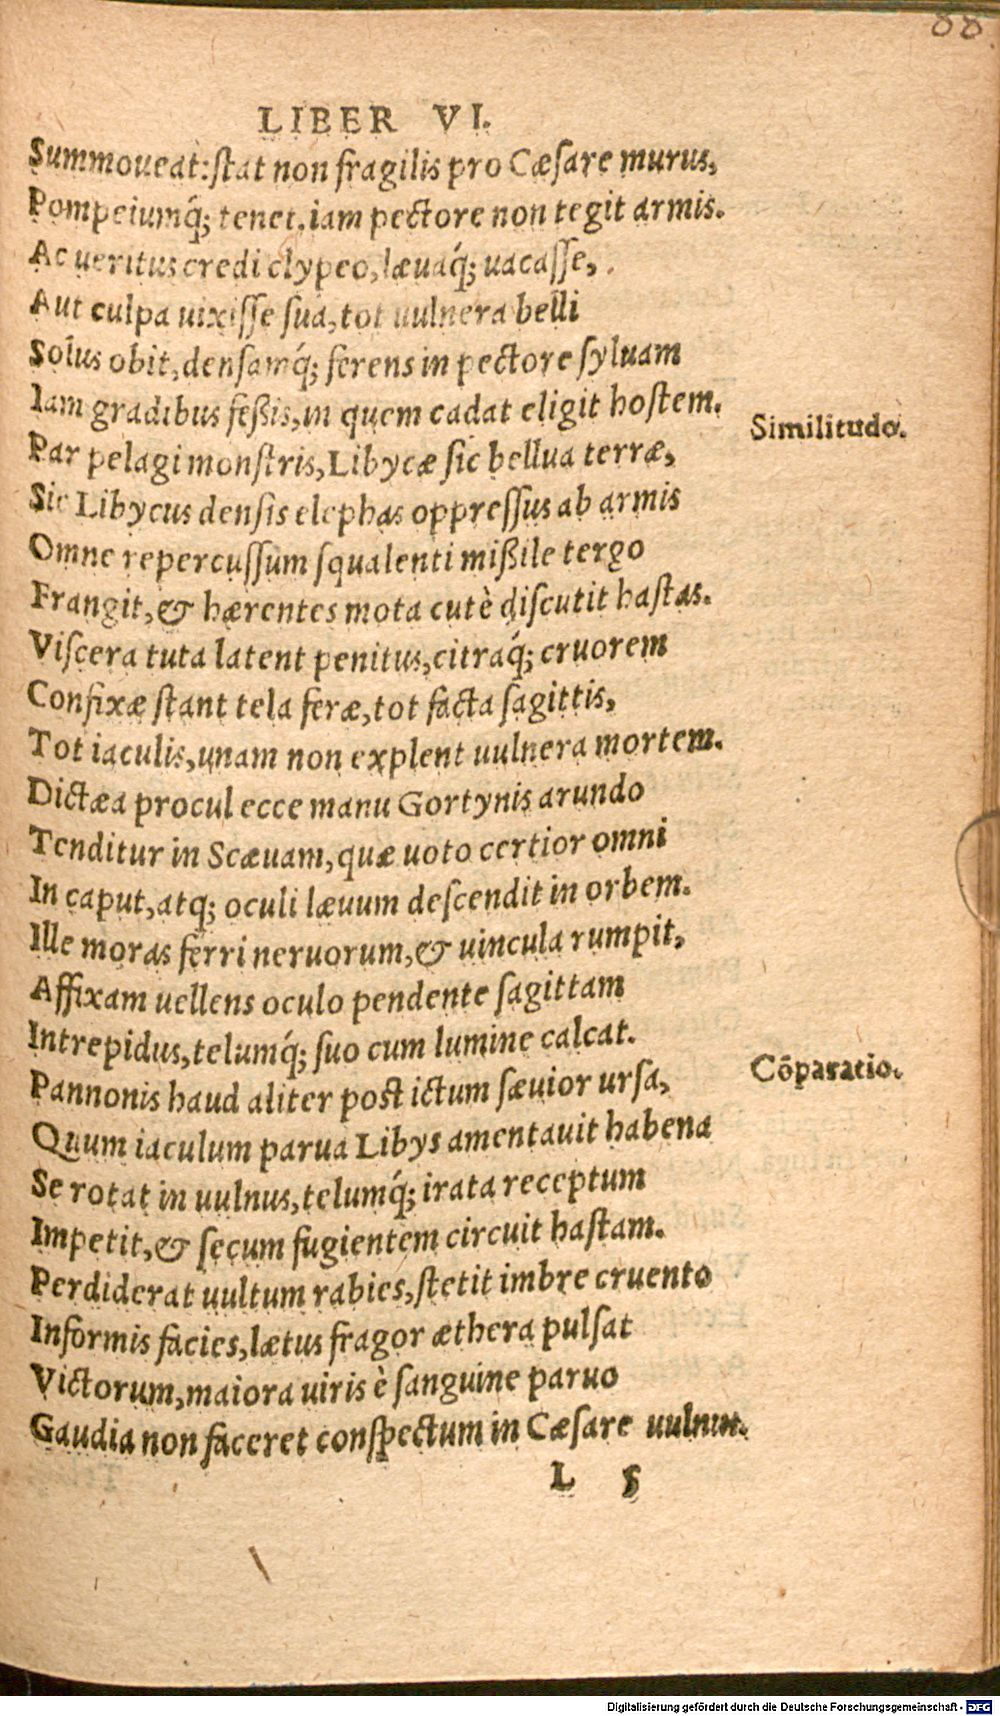 88
LIBER VI.
Summoueat: stat non fragilis pro Cæsare murus,
Pompeiumq́; tenet. iam pectore non tegit armis.
Ac ueritus credi clypeo, læuaq́; uacasse,
Aut culpa uixisse sua, tot uulnera belli
Solus obit, densamq́; ferens in pectore syluam
Iam gradibus feßis, in quem cadat eligit hostem.
Similitudo.
Par pelagi monstris, Libycæ sic bellua terræ,
Sic Libycus densis elephas oppressus ab armis
Omne repercussum squalenti mißile tergo
Frangit, & hærentes mota cutè discutit hastas.
Viscera tuta latent penitus, citraq́; cruorem
Confixæ stant tela feræ, tot facta sagittis,
Tot iaculis, unam non explent uulnera mortem.
Dictæa procul ecce manu Gortynis arundo
Tenditur in Scæuam, quæ uoto certior omni
In caput, atq; oculi læuum descendit in orbem.
Ille moras ferri neruorum, & uincula rumpit,
Affixam uellens oculo pendente sagittam
Intrepidus, telumq́; suo cum lumine calcat.
Cōparatio.
Pannonis haud aliter post ictum sæuior ursa,
Quum iaculum parua Libys amentauit habena
Se rotat in uulnus, telumq́; irata receptum
Impetit, & secum fugientem circuit hastam.
Perdiderat uultum rabies, stetit imbre cruento
Informis facies, lætus fragor æthera pulsat
Victorum, maiora uiris è sanguine paruo
Gaudia non faceret conspectum in Cæsare uulnus.
L 5
Digitalisierung gefördert durch die Deutsche Forschungsgemeinschaft - DFG